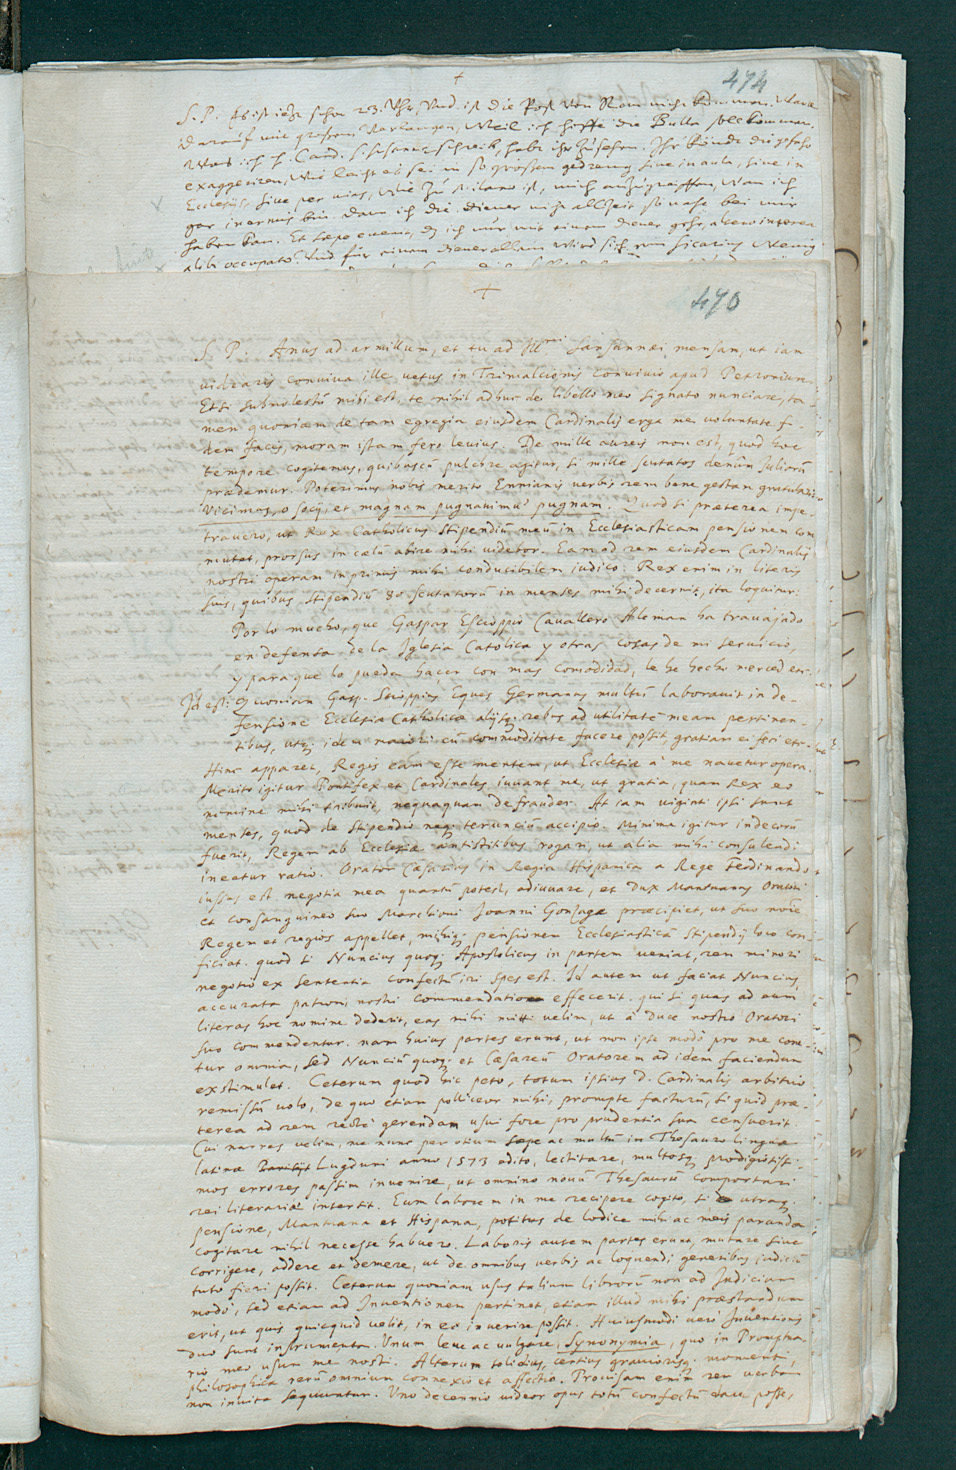 474
S. P. Es ist itzt schon 23. Uhr, Und ist die Post von Rom nicht kommen. Warte
darauf mit grossem Verlangen, Weil ich hoffe die Bulla soll kommen.
Was ich h. Card. schreib, habt ihr zusehen. Ihr könnt die gefahr
exaggeriren, wie leicht es sei in so grossem gedreng sive in aula, sive in
Ecclesijs sive per vias, wie zu Milano ist, mich anzugreiffen, Wan ich
gar inermis bin. dan ich die diener nicht allzeit so nahe bei mir
haben kan. Et saepe evenit, dz ich nur mit einem diener gehe, altero interea
alibi occupato. Und für einem diener allein wird sich ein sicarius wenig
470
S. P. Anus ad armillum, et tu ad Ill.mi Sansannei mensam, ut iam
videaris conviva ille vetus in Trimalcionis convivio apud Petronium.
Etsi submolestū mihi est, te nihil adhuc de libello meo signato nunciare, ta-
men quoniam de tam egregia eiusdem Cardinalis erga me voluntate fi-
dem facis, moram istam fero levius. De mille aureis non est, quod hoc
tempore cogitemus, quibuscū pulchre agitur, si mille scutatos denūm Juliorū
praedemur. Poterimus nobis merito Ennianis verbis rem bene gestam gratulari:
Vicimus, o socij, et magnam pugnavimus pugnam. Quod si praeterea impe-
travero, ut Rex Catholicus stipendiū meū in Ecclesiasticam pensionem com
mutet, prorsus in caelū abire mihi videbor. Eam ad rem eiusdem Cardinalis
nostri operam inprimis mihi conducibilem iudico. Rex enim in literis
suis, quibus stipendiū 80 scutatorū in menses mihi decernit, ita loquitur:
Por lo mucho, que Gaspar Escioppio Cavallero Aleman ha travajado
en defensa de la Iglesia Catolica y otras cosas de mi servicio,
y para que lo pueda hacer con mas comodidad, le he hecho merced etc.
Id est: Quoniam Gasp. Scioppius Eques Germanus multū laboravit in de-
fensione Ecclesiae Catholicae alijsq; rebus ad utilitatē meam pertinen-
tibus, utq; idem maiori cū commoditate facere possit, gratiam ei feci etc.
Hinc apparet, Regis eam esse mentem, ut Ecclesiae a me navetur opera.
Merito igitur Pontifex et Cardinales iuvant me, ut gratia, quam Rex eo
nomine mihi tribuit, nequaquam defrauder. At iam viginti ipsi sunt
menses, quod de stipendio neq; teruncium accipio. Minime igitur indecorū
fuerit, Regem ab Ecclesiae antistitibus rogari, ut alia mihi consulendi
ineatur ratio. Orator Caesareus in Regia Hispanica a Rege Ferdinando
iussus est, negotia mea quantū potest, adiuvare, et Dux Mantuanus Oratori
et consanguineo suo Marchioni Joanni Gonzagae praecipiet, ut suo noīe
Regem et regios appellet, mihiq; pensionem Ecclesiasticā stipendij loco con-
ficiat. quod si Nuncius quoq; Apostolicus in partem veniat, rem minori
negotio ex sententia confectū iri spes est. Id autem ut faciat Nuncius,
accurata patroni nostri commendatione effecerit. qui si quas ad eum
literas hoc nomine dederit, eas mihi mitti velim, ut a Duce nostro Oratori
suo commendentur. nam huius partes erunt, ut non ipse modo pro me coné-
tur omnia, sed Nunciū quoq; et Caesareū Oratorem ad idem faciendum
exstimulet. Ceterum quod hic peto, totum ipsius d. Cardinalis arbitrio
remissū volo, de quo etiam polliceor mihi, prompte facturū, si quid prae-
terea ad rem recte gerendam usui fore pro prudentia sua censuerit.
Cui narres velim, me nunc per otium saepe ac multū in Thesauro linguae
latinae Lugduni anno 1573 edito, lectitare, multosq; prodigiosissi-
mos errores passim invenire, ut omnino novū Thesaurū comportari
rei literariae intersit. Eum laborem in me recipere cogito, si utraq;
pensione, Mantuana et Hispana, potitus de lodice mihi ac meis paranda
cogitare nihil necesse habuero. Laboris autem partes erunt, mutare sive
corrigere, addere et demere, ut de omnibus verbis ac loquendi generibus iudiciū
tuto fieri possit. Ceterum quoniam usus talium librorū non ad Iudicium
modo, sed etiam ad Inventionem pertinet, etiam illud mihi praestandum
erit, ut quis quicquid volit, in eo invenire possit. Huiusmodi vero Inventionis
duo sunt instrumenta. Unum leve ac vulgare, Synonymia, quo in Promptua-
rio meo usum me nosti. Alterum solidius, certius graviorisq; momenti,
philosophica rerū omnium connexio et affectio. Provisam enim rem verba
non invita sequuntur. Uno decennio videor opus totū confectū dare posse,